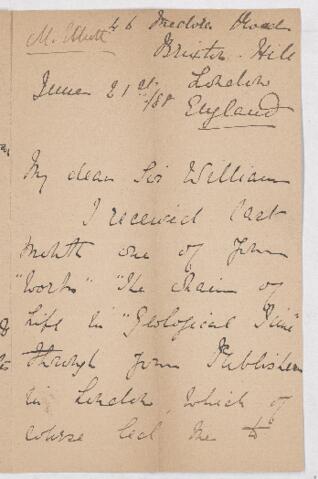 M. Elliott
46 Road
Brixton Hill
London
June 21st/88 England
My dear Sir William
I received last
month one of your
"Works" "The chain of
Life in "Geological Time"
through your Publisher
in London, which of
course led me to